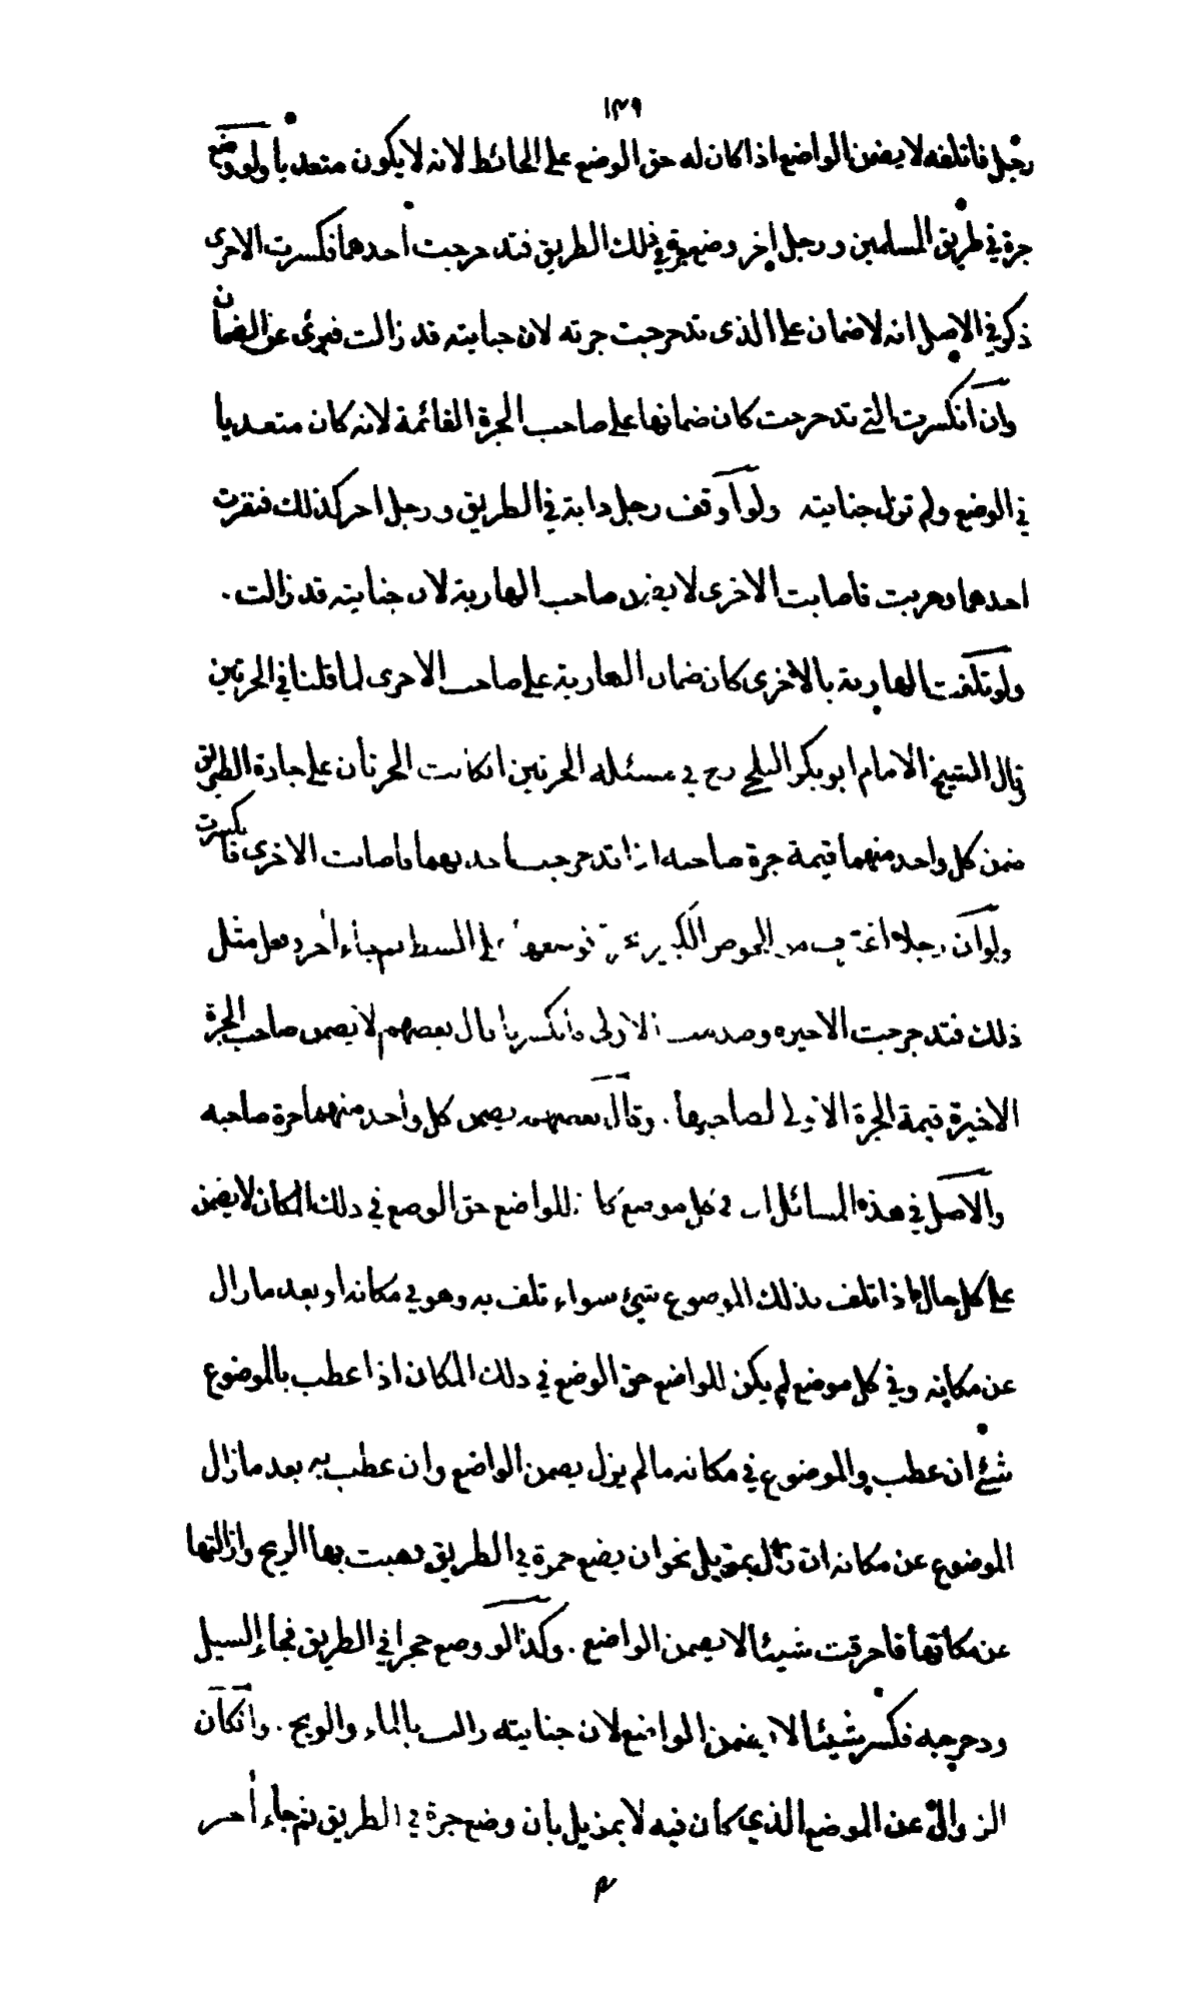 ١٣٩
رجل فاتلفه لا يضمن الواضع اذا كان له حق الوضع على الحائط لانه لا يكون متعديا ولو وضع
جرة في طريق المسلمين ورجل اخر وضع جرة في ذلك الطريق فتدحرجت احدهما فكسرت الاخرى
ذكر في الاصل انه لا ضمان على الذى تدحرجت جرته لان جنايته قد زالت فبرئ عن الضمان
وان انكسرت التي تدحرجت كان ضمانها على صاحب الجرة القائمة لانه كان متعديا
في الوضع ولم تزل جنايته ولو اوقف رجل دابة في الطريق ورجل اخر كذلك فنفرت
احدهما وهربت فاصابت الاخرى لا يضمن صاحب الهاربة لان جنايته قد زالت .
ولو تلفت الهاربة بالاخرى كان ضمان الهاربة على صاحب الاخرى لما قلنا في الجرتين
قال الشيخ الامام ابو بكر البلخي رح في مسئلة الجرتين ان كانت الجرتان على جادة الطريق
ضمن كل واحد منهما قيمة جرة صاحبه اذا تدحرجت احديهما فاصابت الاخرى فانكسرت
ولو ان رجلا اغترف من الحوض الكبير جرة فوضعها على الشط ثم جاء اخر وفعل مثل
ذلك فتدحرجت الاخيرة وصدمت الاولى فانكسرتا قال بعضهم لا يضمن صاحب الجرة
الاخيرة قيمة الجرة الاولى لصاحبها . وقال بعضهم يضمن كل واحد منهما جرة صاحبه
والاصل في هذه المسائل ان في كل موضع كان للواضع حق الوضع في ذلك المكان لا يضمن
على كل حال اذا تلف بذلك الموضوع شئ سواء تلف به وهو في مكانه او بعد ما زال
عن مكانه وفي كل موضع لم يكن للواضع حق الوضع في ذلك المكان اذا عطب بالموضوع
شئ ان عطب والموضوع في مكانه ما لم يزل يضمن الواضع وان عطب به بعد ما زال
الموضوع عن مكانه ان زال بمزيل نحو ان يضع جمرة في الطريق فهبت بها الريح وازالتها
عن مكانها فاحرقت شيئا لا يضمن الواضع . وكذا لو وضع حجرا في الطريق فجاء السيل
ودحرجه فكسر شيئا لا يضمن الواضع لان جنايته زالت بالماء والريح . وان كان
الزوال عن الموضع الذي كان فيه لا بمزيل بان وضع جرة في الطريق ثم جاء اخر